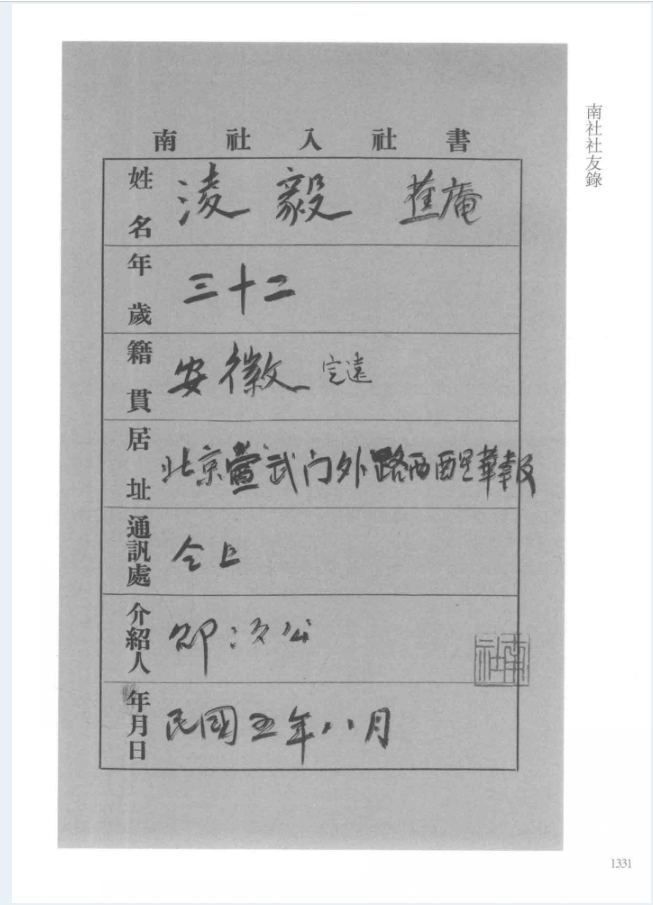 南社社友錄
南社入社書
姓名 淩毅 蕉庵
年歲 三十二
籍貫 安徽 定遠
居址 北京宣武门外路西醒華報
通訊處 仝上
介紹人 邵次公
年月日 民國五年八月
南社
1331